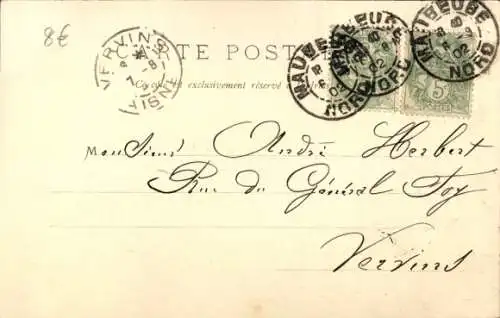 8€
CARTE POSTALE
Ce côté est exclusivement réservé à l'adresse
VERVINS
AISNE
MAUBEUGE
NORD
MAUBEUGE
NORD
MAUBEUGE
NORD
5
Monsieur André Herbert
Rue du Général Foy
Vervins